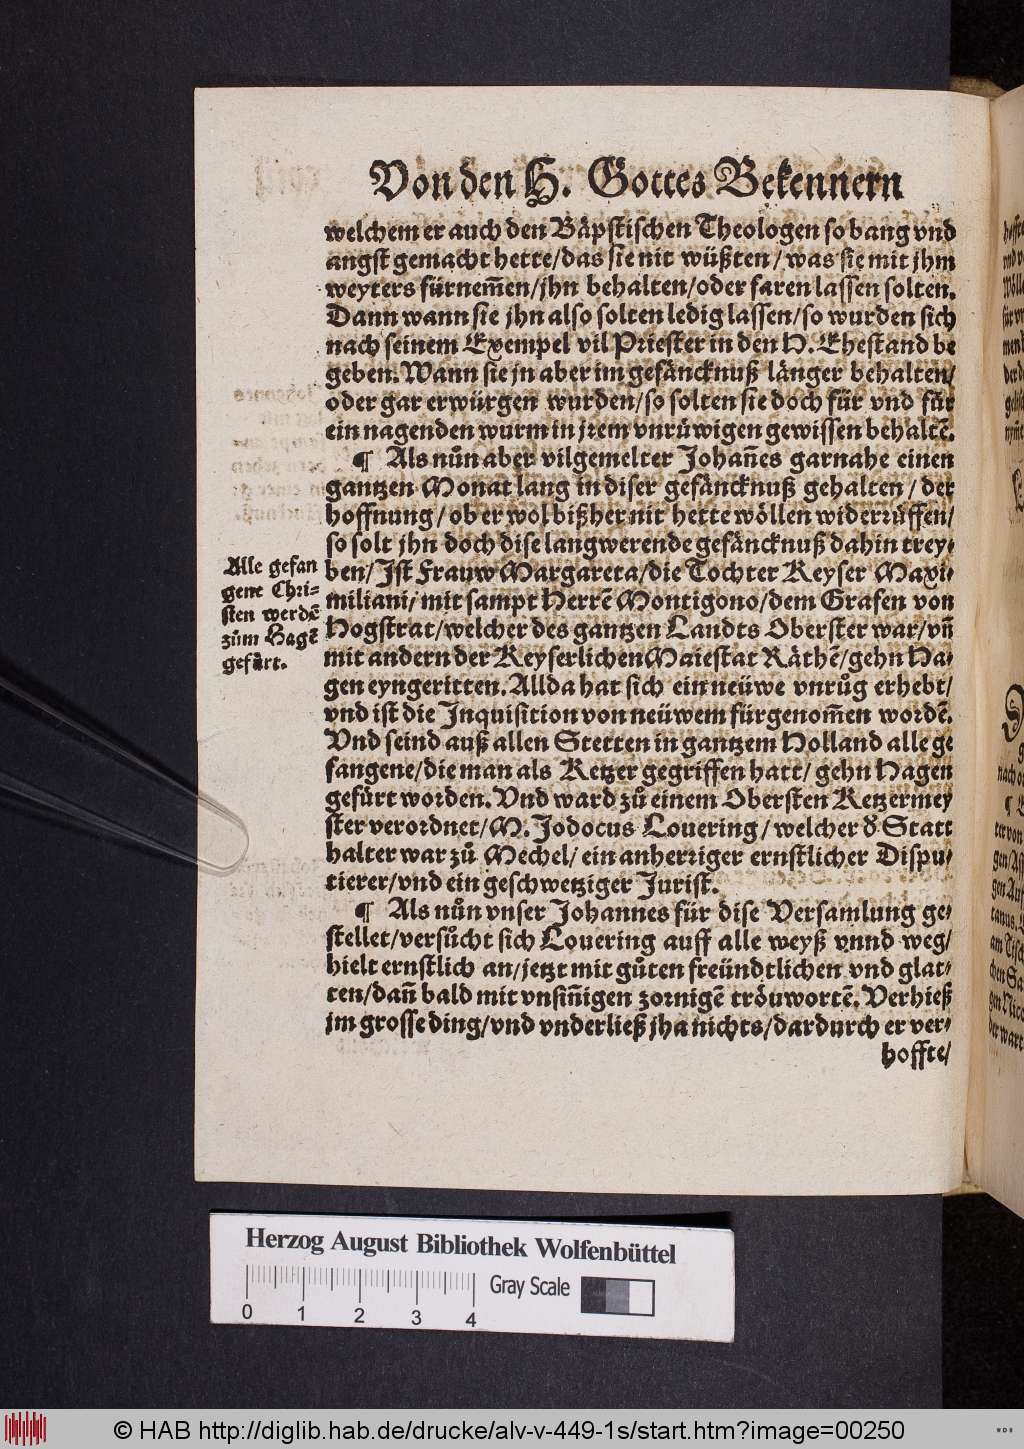 Von den H. Gottes Bekennern
welchem er auch den Bäpstischen Theologen so bang vnd
angst gemacht hette/das sie nit wüßten/was sie mit jhm
weyters fürnem̃en/jhn behalten/oder faren lassen solten.
Dann wann sie jhn also solten ledig lassen/so wurden sich
nach seinem Exempel vil Priester in den H. Ehestand be
geben. Wann sie jn aber im gefäncknuß länger behalten/
oder gar erwürgen wurden/so solten sie doch für vnd für
ein nagenden wurm in jrem vnrůwigen gewissen behaltẽ.
¶ Als nůn aber vilgemelter Johan̄es garnahe einen
gantzen Monat lang in diser gefäncknuß gehalten/der
hoffnung/ob er wol bißher nit hette wöllen widerrůffen/
so solt jhn doch dise langwerende gefäncknuß dahin trey-
ben/Ist Frauw Margareta/die Tochter Keyser Maxi-
miliani/mit sampt Herrẽ Montigono/dem Grafen von
Hogstrat/welcher des gantzen Landts Oberster war/vñ
mit andern der Keyserlichen Maiestat Räthẽ/gehn Ha-
gen eyngeritten. Allda hat sich ein neüwe vnrůg erhebt/
vnd ist die Inquisition von neüwem fürgenom̃en wordẽ.
Vnd seind auß allen Stetten in gantzem Holland alle ge
fangene/die man als Ketzer gegriffen hatt/gehn Hagen
gefürt worden. Vnd ward zů einem Obersten Ketzermey
ster verordnet/M. Jodocus Louering/welcher d̃ Statt
halter war zů Mechel/ein anherriger ernstlicher Dispu-
tierer/vnd ein geschwetziger Jurist.
¶ Als nůn vnser Johannes für dise Versamlung ge-
stellet/versůcht sich Louering auff alle weyß vnnd weg/
hielt ernstlich an/jetzt mit gůten freündtlichen vnd glat-
ten/dañ bald mit vnsiñigen zornigẽ tröuwortẽ. Verhieß
jm grosse ding/vnd vnderließ jha nichts/dardurch er ver-
hoffte/
Alle gefan
gene Chri-
sten werdẽ
zům Hagẽ
gefürt.
Herzog August Bibliothek Wolfenbüttel
0 1 2 3 4
Gray Scale
© HAB http://diglib.hab.de/drucke/alv-v-449-1s/start.htm?image=00250